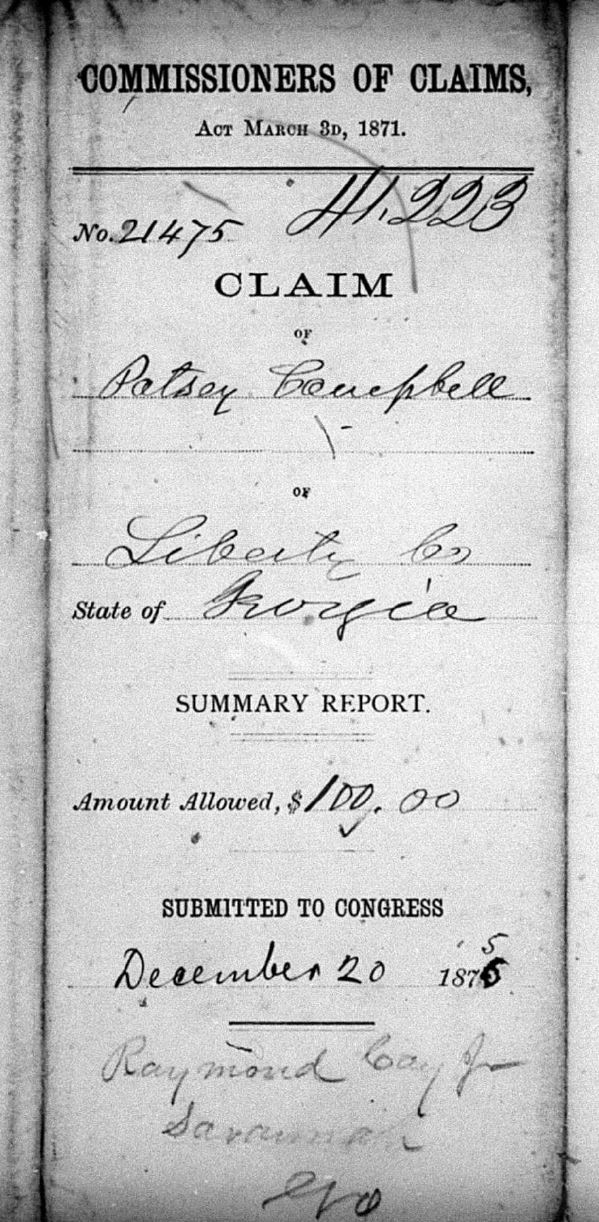 COMMISSIONERS OF CLAIMS,
ACT MARCH 3D, 1871.
No. 21475 41.223
CLAIM
OF
Patsey Campbell
OF
Liberty Co
State of Georgia
SUMMARY REPORT.
Amount Allowed, $100.00
SUBMITTED TO CONGRESS
December 20 1875
Raymond Cay Jr
Savannah
Geo